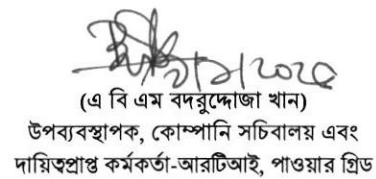 (এ বি এম বদরুদ্দোজা খান)
উপব্যবস্থাপক, কোম্পানি সচিবালয় এবং
দায়িত্বপ্রাপ্ত কর্মকর্তা-আরটিআই, পাওয়ার গ্রিড